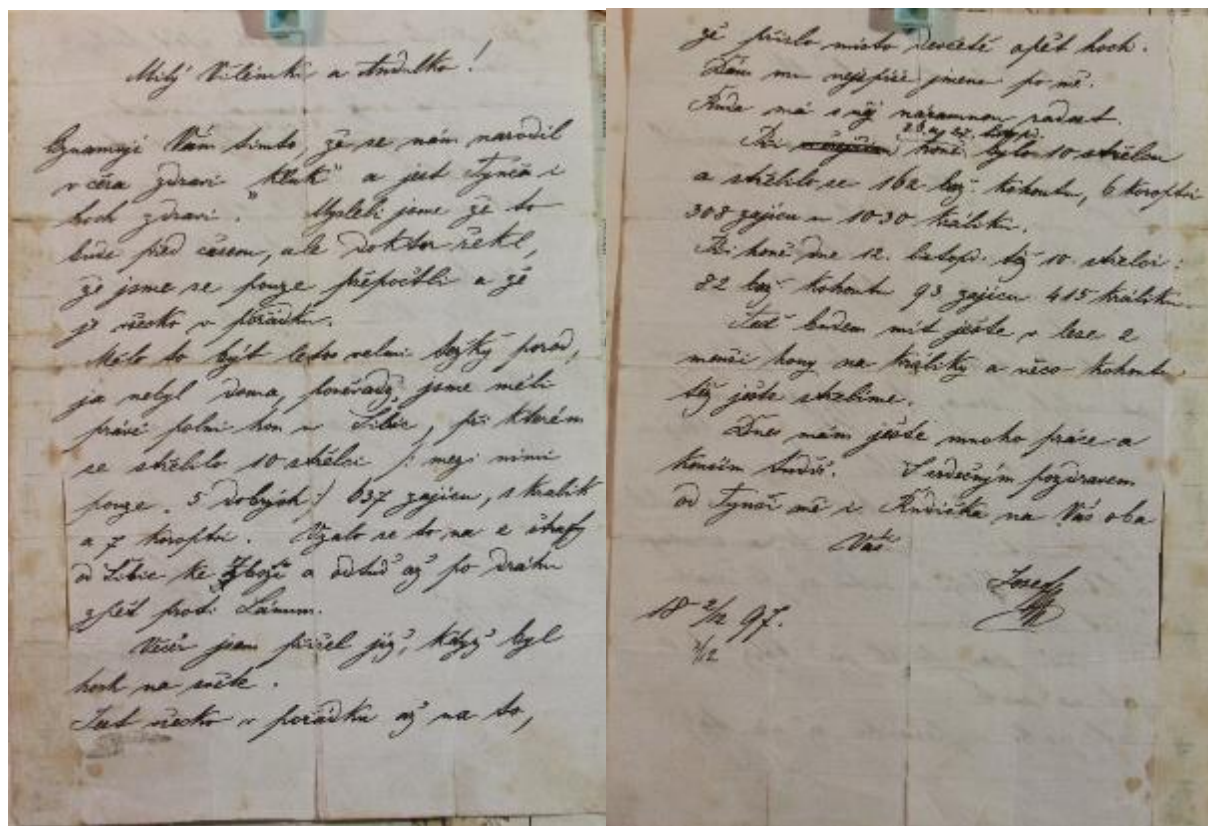 Milý Vilémku a Andulko!
Oznamuji Vám tímto, že se nám narodil
včera zdravý "kluk" a jest Tynča i
hoch zdraví. Mysleli jsme že to
bude před časem, ale doktor řekl,
že jsme se pouze přepočtli a že
je všecko v pořádku.
Mělo to být letos velmi težký porod,
ja nebyl doma, poněvadž jsme měli
právě polní hon u Libic, při kterém
se střelilo 10 střelci /: mezi nimi
pouze 5 dobrých :/ 637 zajicu, 1 kralik
a 7 koroptvi. Vzalo se to na 2 štrafy
od Libic ke Zboží a odtud až po dráhu
zpět proti Lánum.
Večer jsem přišel již, když byl
hoch na světe.
Jest všecko v pořádku až na to,
že přišlo místo děvčete opět hoch.
Dám mu nejspíše jmeno po mě.
Ruda má s něj náramnou radost.
Při honě 20. a 27. listop. bylo 10 střelcu
a střelilo se 162 baž. kohoutu, 6 koroptvi
308 zajicu a 1030 králiku.
Při honě dne 12. listop. též 10 střelci:
82 baž. kohoutu 93 zajicu 415 králiku.
Teď budem mít ješte v lese 2
menši hony na králiky a něco kohoutu
též ješte střelíme.
Dnes mám ješte mnoho práce a
končím tudíž. S srdečným pozdravem
od Tynči mě i Rudíčka na Vás oba
Váš
Josef
18 2/12 97.
2/12